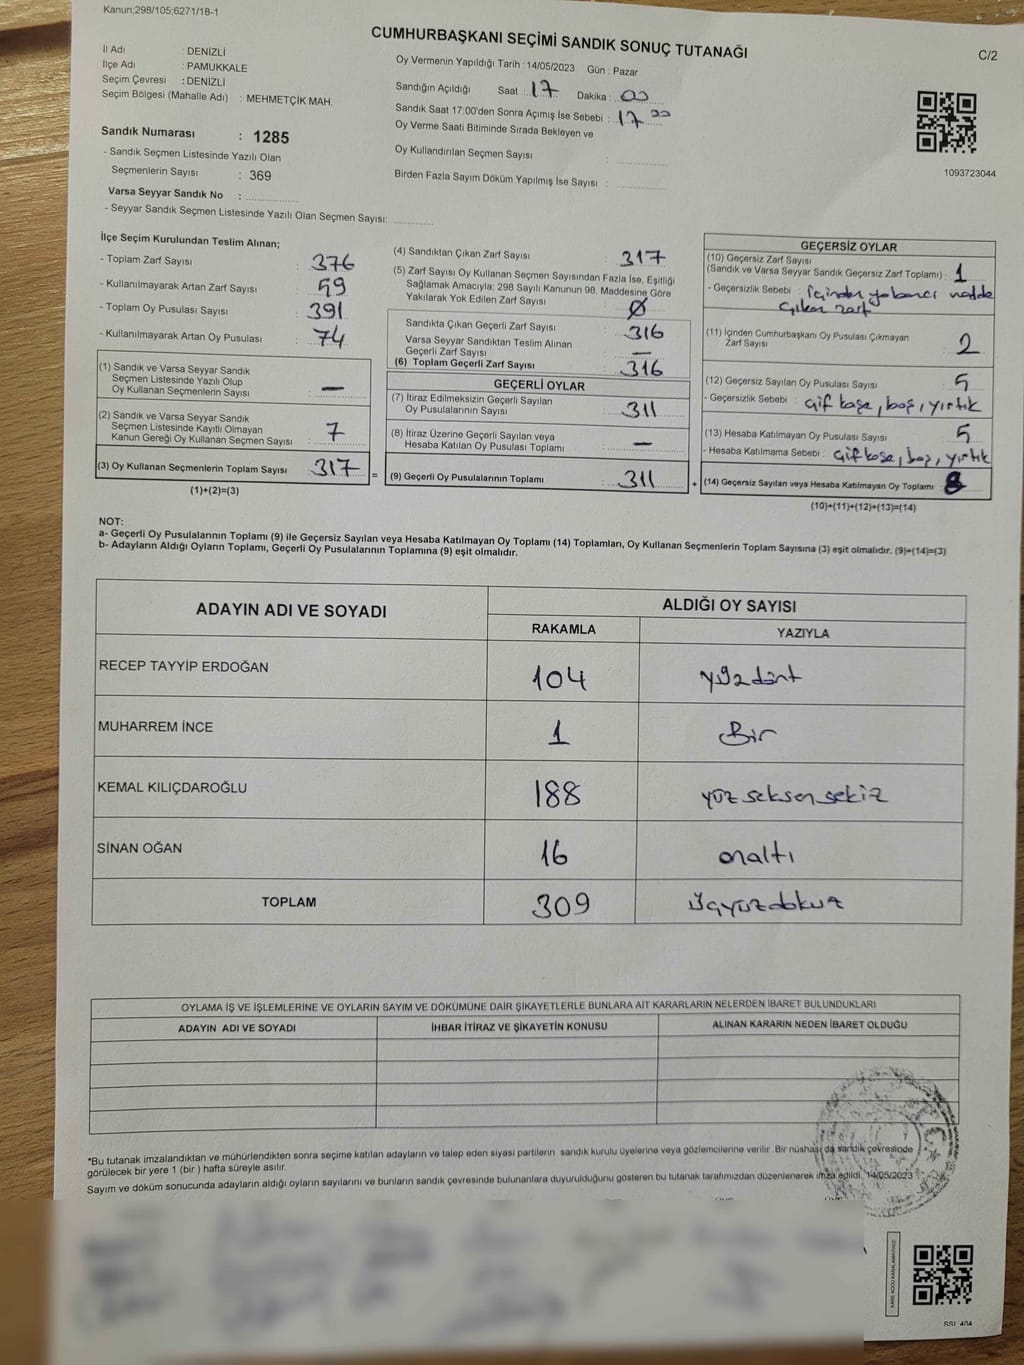 Kanun;298/105;6271/18-1
CUMHURBAŞKANI SEÇİMİ SANDIK SONUÇ TUTANAĞI
C/2
İl Adı : DENİZLİ
İlçe Adı : PAMUKKALE
Seçim Çevresi : DENİZLİ
Seçim Bölgesi (Mahalle Adı) : MEHMETÇİK MAH.
Sandık Numarası : 1285
- Sandık Seçmen Listesinde Yazılı Olan
Seçmenlerin Sayısı : 369
Varsa Seyyar Sandık No :
- Seyyar Sandık Seçmen Listesinde Yazılı Olan Seçmen Sayısı:
Oy Vermenin Yapıldığı Tarih : 14/05/2023 Gün : Pazar
Sandığın Açıldığı Saat : 17 Dakika : 00
Sandık Saat 17:00'den Sonra Açımış İse Sebebi : 17 00
Oy Verme Saati Bitiminde Sırada Bekleyen ve
Oy Kullandırılan Seçmen Sayısı :
Birden Fazla Sayım Döküm Yapılmış İse Sayısı :
1093723044
İlçe Seçim Kurulundan Teslim Alınan;
- Toplam Zarf Sayısı : 376
- Kullanılmayarak Artan Zarf Sayısı : 59
- Toplam Oy Pusulası Sayısı : 391
- Kullanılmayarak Artan Oy Pusulası : 74
(1) Sandık ve Varsa Seyyar Sandık
Seçmen Listesinde Yazılı Olup
Oy Kullanan Seçmenlerin Sayısı : —
(2) Sandık ve Varsa Seyyar Sandık
Seçmen Listesinde Kayıtlı Olmayan
Kanun Gereği Oy Kullanan Seçmen Sayısı : 7
(3) Oy Kullanan Seçmenlerin Toplam Sayısı : 317 =
(1)+(2)=(3)
(4) Sandıktan Çıkan Zarf Sayısı : 317
(5) Zarf Sayısı Oy Kullanan Seçmen Sayısından Fazla İse, Eşitliği
Sağlamak Amacıyla; 298 Sayılı Kanunun 98. Maddesine Göre
Yakılarak Yok Edilen Zarf Sayısı : 0
Sandıkta Çıkan Geçerli Zarf Sayısı : 316
Varsa Seyyar Sandıktan Teslim Alınan
Geçerli Zarf Sayısı : —
(6) Toplam Geçerli Zarf Sayısı : 316
GEÇERLİ OYLAR
(7) İtiraz Edilmeksizin Geçerli Sayılan
Oy Pusulalarının Sayısı : 311
(8) İtiraz Üzerine Geçerli Sayılan veya
Hesaba Katılan Oy Pusulası Toplamı : —
(9) Geçerli Oy Pusulalarının Toplamı : 311 +
GEÇERSİZ OYLAR
(10) Geçersiz Zarf Sayısı
(Sandık ve Varsa Seyyar Sandık Geçersiz Zarf Toplamı) : 1
- Geçersizlik Sebebi : içinden yabancı madde
çıkan zarf
(11) İçinden Cumhurbaşkanı Oy Pusulası Çıkmayan
Zarf Sayısı : 2
(12) Geçersiz Sayılan Oy Pusulası Sayısı : 5
- Geçersizlik Sebebi : Çif kaşe, boş, yırtık
(13) Hesaba Katılmayan Oy Pusulası Sayısı : 5
- Hesaba Katılmama Sebebi : Çif kaşe, boş, yırtık
(14) Geçersiz Sayılan veya Hesaba Katılmayan Oy Toplamı : 8
(10)+(11)+(12)+(13)=(14)
NOT:
a- Geçerli Oy Pusulalarının Toplamı (9) ile Geçersiz Sayılan veya Hesaba Katılmayan Oy Toplamı (14) Toplamları, Oy Kullanan Seçmenlerin Toplam Sayısına (3) eşit olmalıdır. (9)+(14)=(3)
b- Adayların Aldığı Oyların Toplamı, Geçerli Oy Pusulalarının Toplamına (9) eşit olmalıdır.
ADAYIN ADI VE SOYADI ALDIĞI OY SAYISI
RAKAMLA YAZIYLA
RECEP TAYYİP ERDOĞAN 104 yüzdört
MUHARREM İNCE 1 Bir
KEMAL KILIÇDAROĞLU 188 yüz seksen sekiz
SİNAN OĞAN 16 onaltı
TOPLAM 309 üçyüzdokuz
OYLAMA İŞ VE İŞLEMLERİNE VE OYLARIN SAYIM VE DÖKÜMÜNE DAİR ŞİKAYETLERLE BUNLARA AİT KARARLARIN NELERDEN İBARET BULUNDUKLARI
ADAYIN ADI VE SOYADI İHBAR İTİRAZ VE ŞİKAYETİN KONUSU ALINAN KARARIN NEDEN İBARET OLDUĞU
*Bu tutanak imzalandıktan ve mühürlendikten sonra seçime katılan adayların ve talep eden siyasi partilerin sandık kurulu üyelerine veya gözlemcilerine verilir. Bir nüshası da sandık çevresinde
görülecek bir yere 1 (bir ) hafta süreyle asılır.
Sayım ve döküm sonucunda adayların aldığı oyların sayılarını ve bunların sandık çevresinde bulunanlara duyurulduğunu gösteren bu tutanak tarafımızdan düzenlenerek imza edildi. 14/05/2023